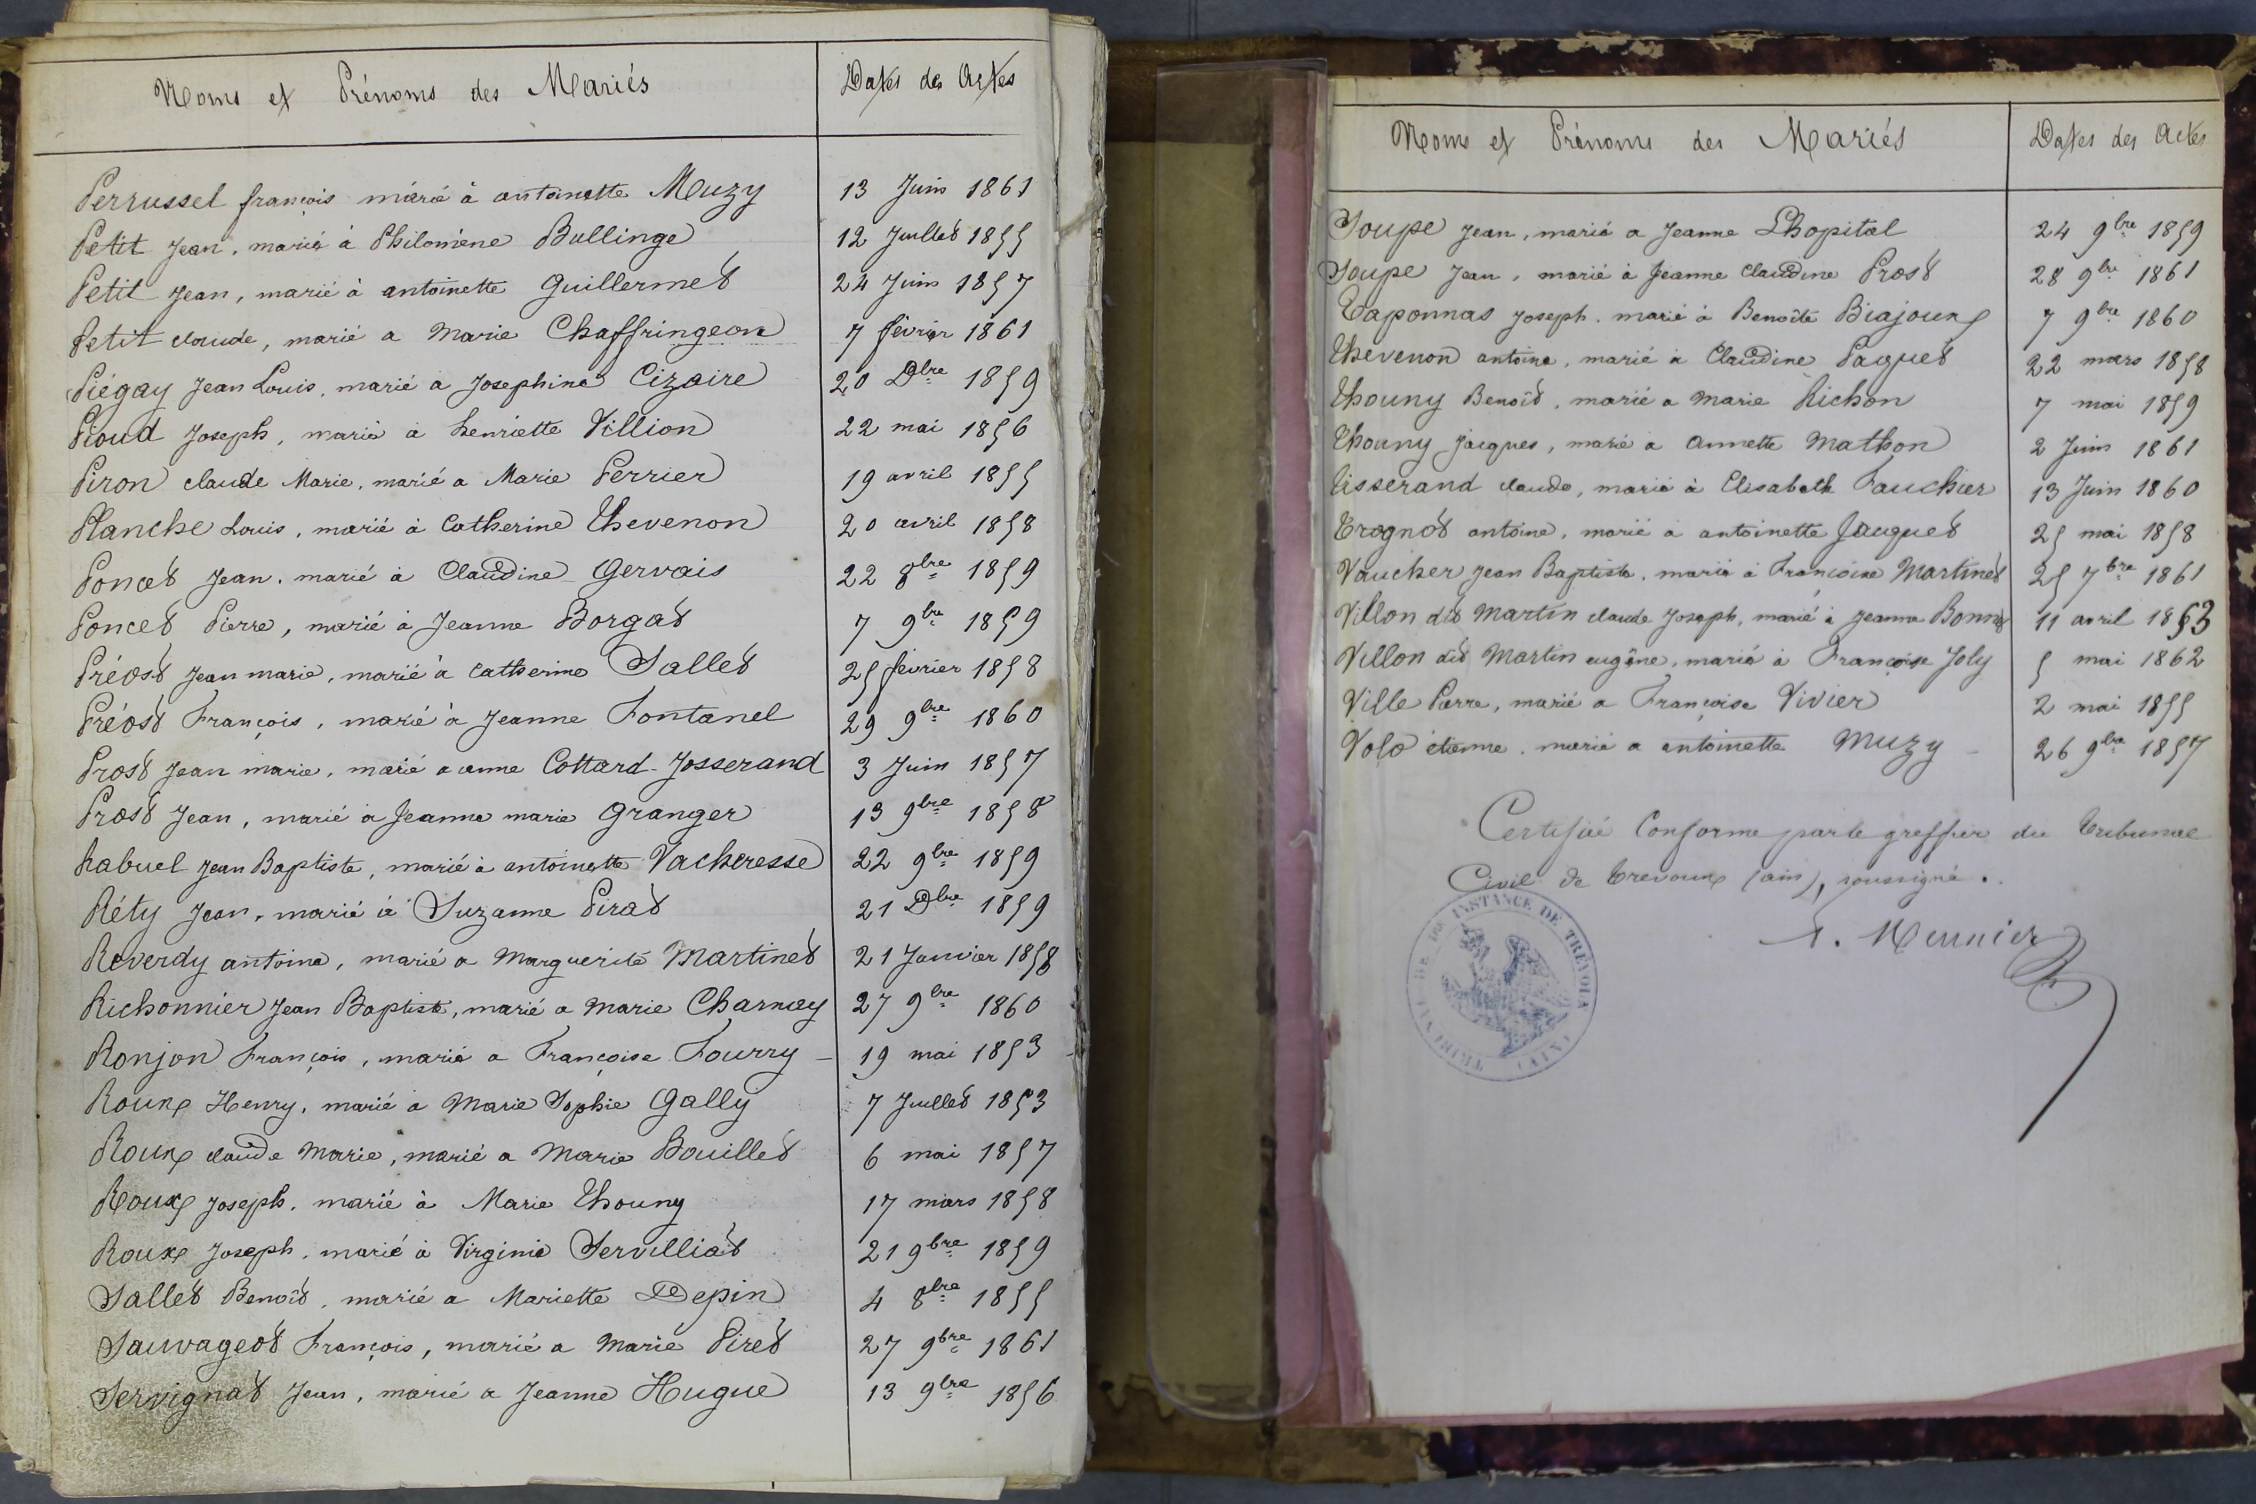 Noms et Prénoms des Mariés Dates des Actes
Perrussel françois marié à antoinette Muzy 13 Juin 1861
Petit Jean, marié à Philomène Bullinge 12 Juillet 1855
Petit Jean, marié à antoinette Guillermet 24 Juin 1857
Petit claude, marié a Marie Chaffringeon 7 février 1861
Piégay Jean Louis, marié a Josephine Cizaire 20 Dbre 1859
Pioud Joseph, marié à henriette Villion 22 mai 1856
Piron claude Marie, marié a Marie Perrier 19 avril 1855
Planche Louis, marié à Catherine Thevenon 20 avril 1858
Poncet Jean, marié à Claudine Gervais 22 8bre 1859
Poncet Pierre, marié à Jeanne Borgat 7 9bre 1859
Préost Jean marie, marié à catherine Sallet 25 février 1858
Préost François, marié à Jeanne Fontanel 29 9bre 1860
Prost Jean marie, marié a anne Cottard-Josserand 3 Juin 1857
Prost Jean, marié à Jeanne marie Granger 13 9bre 1858
Rabuel Jean Baptiste, marié à antoinette Vacheresse 22 9bre 1859
Réty Jean, marié à Suzanne Pirat 21 Dbre 1859
Reverdy antoine, marié a Marguerite Martinet 21 Janvier 1858
Richonnier Jean Baptiste, marié a Marie Charnay 27 9bre 1860
Ronjon François, marié a Françoise Fourry 19 mai 1853
Roux Henry, marié a Marie Sophie Gally 7 Juillet 1853
Roux claude Marie, marié a Marie Bouillet 6 mai 1857
Roux Joseph, marié à Marie Thouny 17 mars 1858
Roux Joseph, marié à Virginie Servilliat 21 9bre 1859
Sallet Benoît, marié a Mariette Depin 4 8bre 1855
Sauvageot François, marié a Marie Piret 27 9bre 1861
Servignat Jean, marié a Jeanne Hugue 13 9bre 1856
Noms et Prénoms des Mariés Dates des Actes
Soupe Jean, marié a Jeanne Lhopital 24 9bre 1859
Soupe Jean, marié à Jeanne Claudine Prost 28 9bre 1861
Taponnas Joseph, marié à Benoîte Biajoux 7 9bre 1860
Thevenon antoine, marié à Claudine Paquet 22 mars 1858
Thouny Benoît, marié a Marie Richon 7 mai 1859
Thouny Jacques, marié a Annette Mathon 2 Juin 1861
Tisserand claude, marié à Elisabeth Fauchier 13 Juin 1860
Trognot antoine, marié à antoinette Jacquet 25 mai 1858
Vaucher Jean Baptiste, marié à Françoise Martinet 25 7bre 1861
Villon dit Martin claude Joseph, marié à Jeanne Bonnet 11 avril 1853
Villon dit Martin eugène, marié à Françoise Joly 5 mai 1862
Ville Pierre, marié a Françoise Vivier 2 mai 1855
Volo étienne, marié a antoinette Muzy 26 9bre 1857
Certifié Conforme par le greffier du Tribunal
Civil de Trevoux (ain), soussigné.
Meunier
TRIBUNAL DE 1re INSTANCE DE TRÉVOUX (AIN)